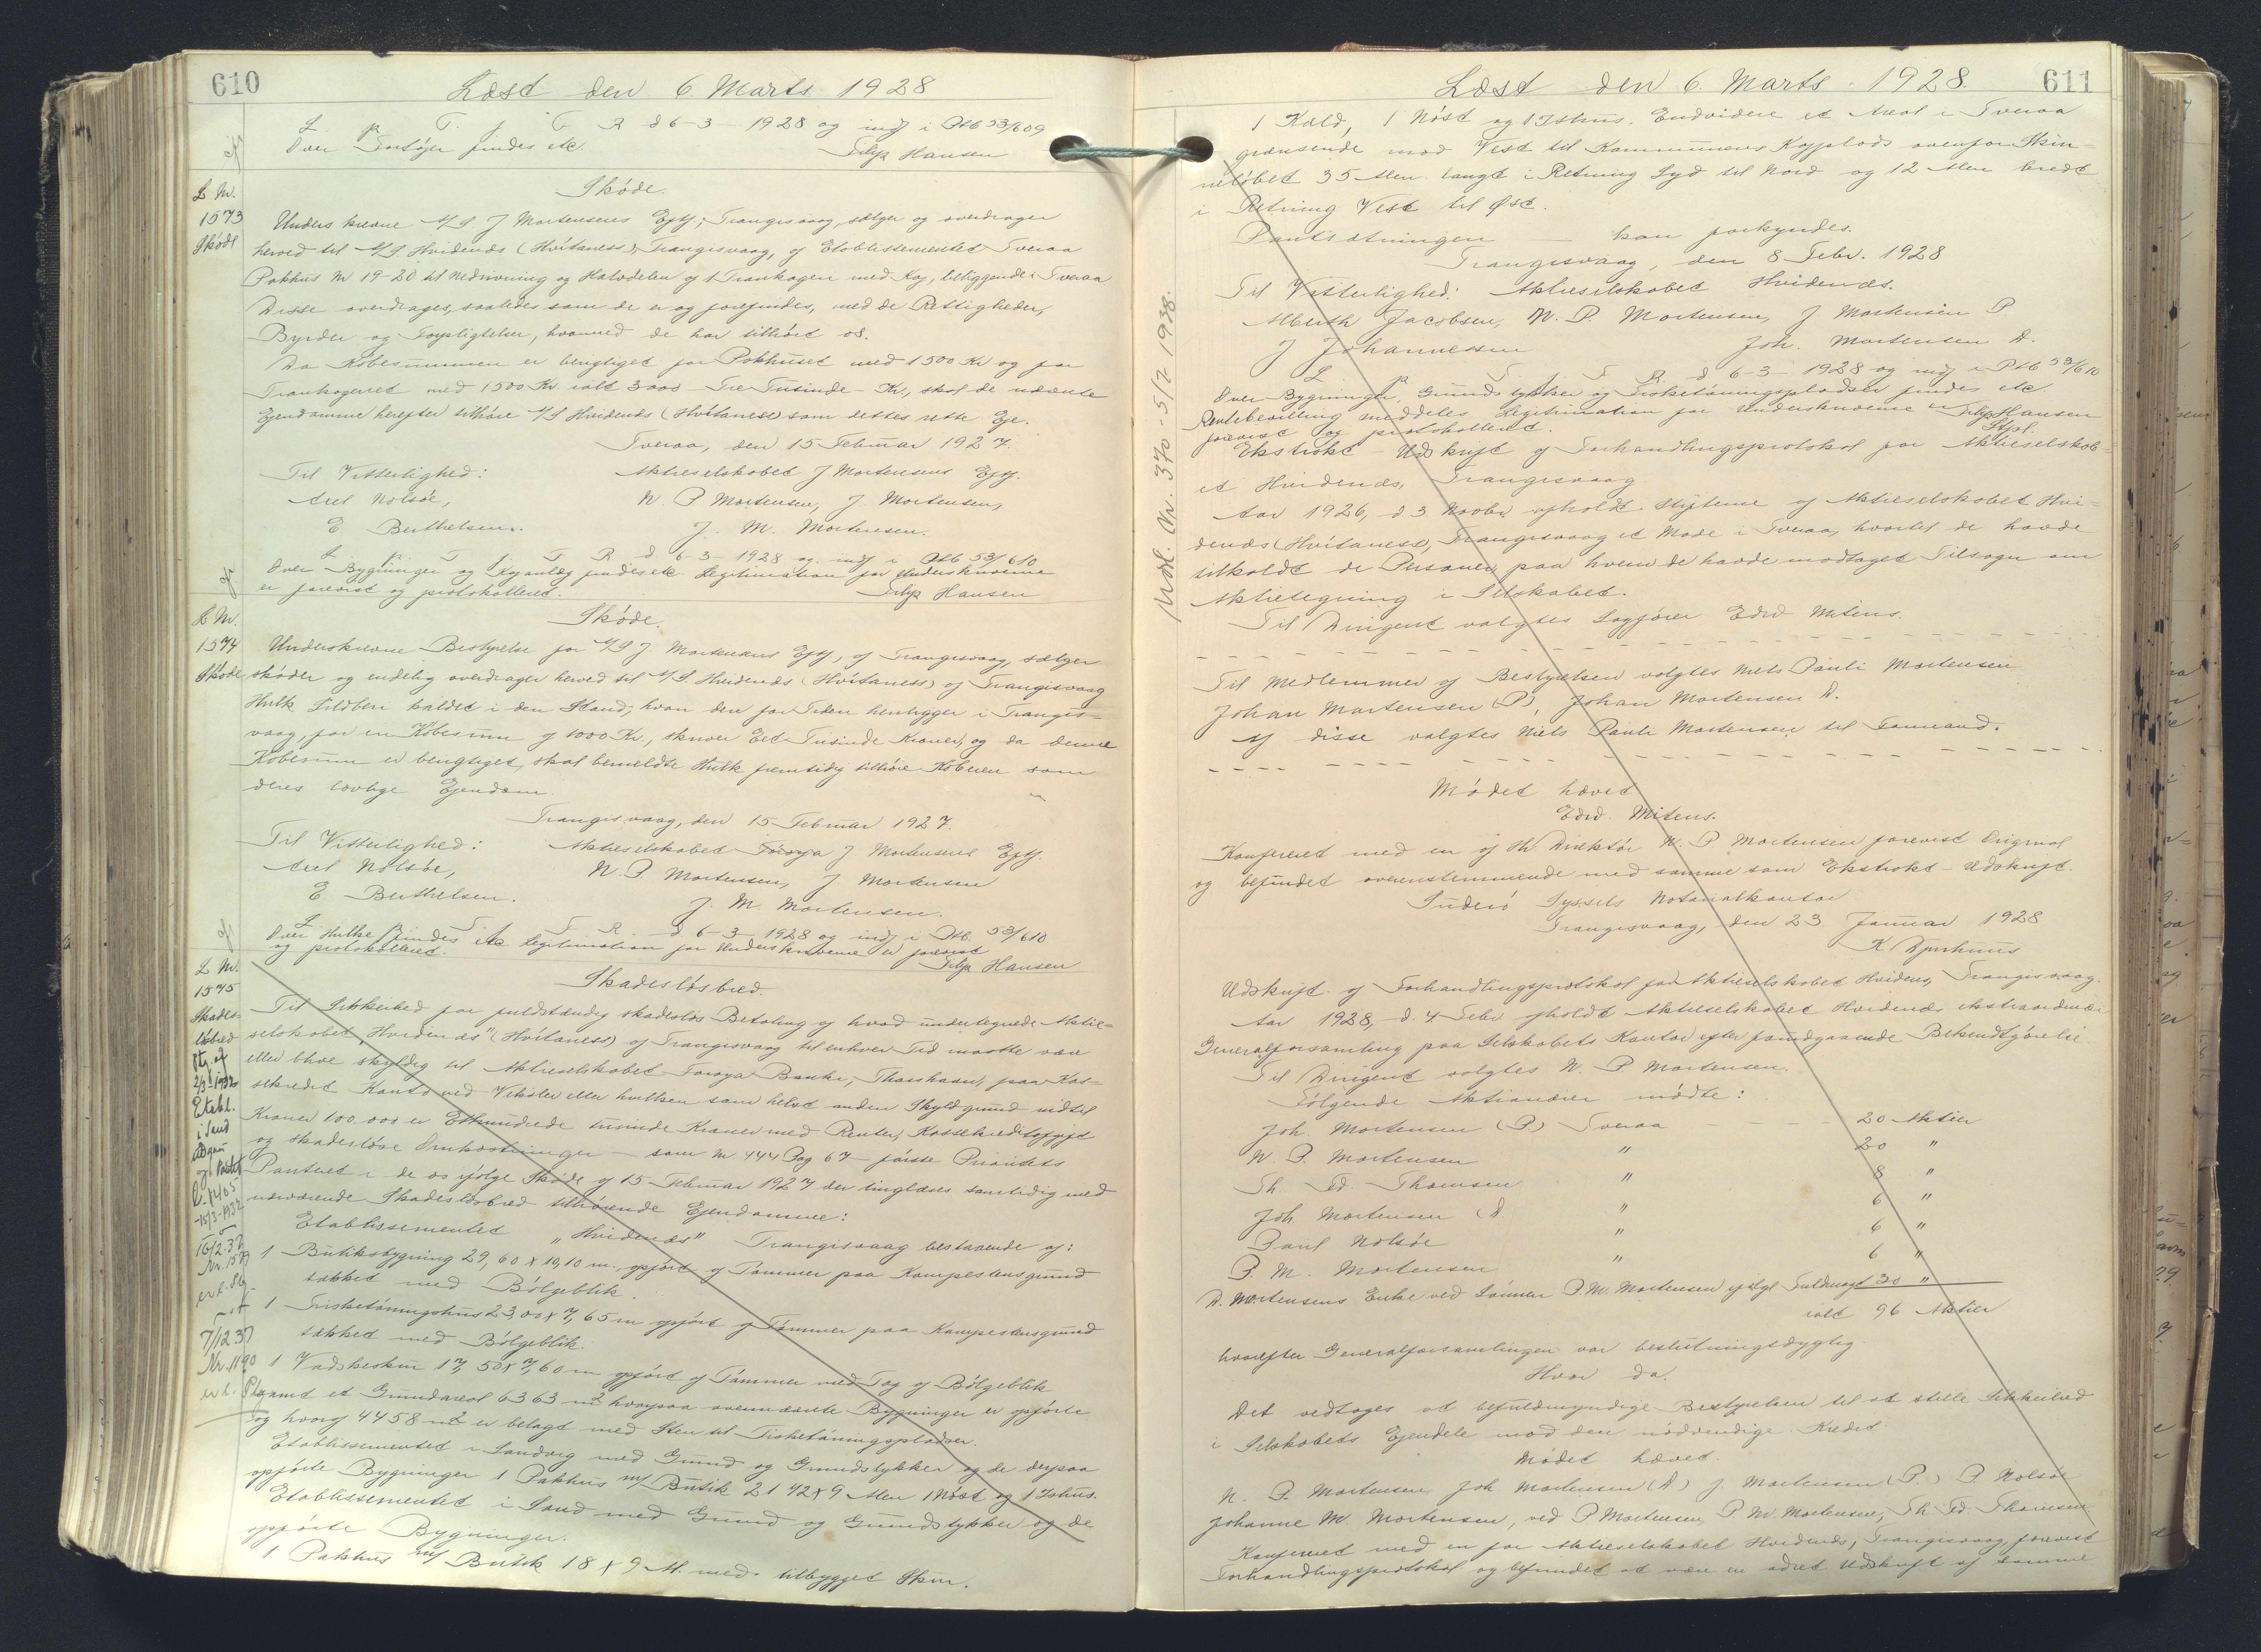 610
Læst den 6. Marts 1928
L p T. j. F R d 6-3-1928 og indf i Ptb 53/609
Over Fartøjer findes etc. Filip Hansen
L Nr.
1573
Skøde
Skøde.
Underskrevne A/S J Mortensens Eftf; Trangisvaag, sælger og overdrager
herved til A/S. Hvidenæs (Hvítaness), Trangisvaag, af Etablissementet Tveraa
Pakhus Nr 19-20 til Nedrivning og Halvdelen af 1 Trankogeri med Kaj, beliggende i Tveraa
Disse overdrages, saaledes som de er og forefindes, med de Rettigheder,
Byrder og Forpligtelser, hvormed de har tilhørt os.
Da Købesummen er berigtiget for Pakhuset med 1500 Kr og for
Trankogeriet med 1500 Kr. ialt 3000 - Tre Tusinde - Kr., skal de nævnte
Ejendomme herefter tilhøre A/S Hvidenæs (Hvítaness) som dettes rette Eje.
Tveraa, den 15 Februar 1927.
Til Vitterlighed: Aktieselskabet J Mortensens Eftf.
Axel Nolsøe, N. P Mortensen, J Mortensen,
E Berthelsen. J. M. Mortensen.
L p. T j. F R. d 6-3-1928 og indf i Ptb 53/610
Over Bygninger og Kajanlæg findes etc. Legitimation for Underskriverne
er forevist og protokolleret. Filip Hansen
L Nr.
1574
Skøde
Skøde.
Underskrevne Bestyrelse for A/S J Mortensens Eftf, af Trangisvaag, sælger
skøder og endelig overdrager herved til A/S. Hvidenæs (Hvítaness) af Trangisvaag
Hulk Sildberi kaldet i den Stand, hvori den for Tiden henligger i Trangis-
vaag, for en Købesum af 1000 Kr., skriver Eet Tusinde Kroner, og da denne
Købesum er berigtiget, skal bemeldte Hulk fremtidig tilhøre Køberen som
deres lovlige Ejendom.
Trangisvaag, den 15 Februar 1927.
Til Vitterlighed: Aktieselskabet J Mortensens Eftf.
Axel Nolsøe, N. P. Mortensen, J Mortensen
E Berthelsen. J. M. Mortensen.
L p. T. j. F R. d 6-3-1928 og indf i Ptb. 53/610
Over Hulke findes etc Legitimation for Underskriverne er forevist
og protokolleret. Filip Hansen
L Nr.
1575
Skades-
løsbrev
Skadesløsbrev.
Til Sikkerhed for fuldstændig skadesløs Betaling af hvad undertegnede Aktie-
selskabet "Hvidenæs" (Hvítaness) af Trangisvaag til enhver Tid maatte være
eller blive skyldig til Aktieselskabet Føroya Banki, Thorshavn, paa Kas-
sekredit Konto ved Veksler eller hvilken som helst anden Skyldgrund indtil
Kroner 100.000 er Ethundrede tusinde Kroner med Renter, Kassekreditafgift
og skadesløse Omkostninger - som Nr 444 Pag 67 - første Prioritets
Panteret i de os ifølge Skøde af 15 Februar 1927 der tinglæses samtidig med
nærværende Skadesløsbrev tilhørende Ejendomme:
Etablissementet "Hvidenæs" Trangisvaag bestaaende af:
1 Butiksbygning 29,60 x 10,10 m., opført af Tømmer paa Kampestensgrund
tækket med Bølgeblik.
1 Fisketørringshus 23,00 x 7,65 m opført af Tømmer paa Kampestensgrund
tækket med Bølgeblik.
1 Vadskeskur 17,50 x 7,60 m opført af Tømmer med Tag af Bølgeblik
samt et Grundareal 6363 m2 hvorpaa ovennævnte Bygninger er opførte
og hvoraf 4458 m2 er belagt med Sten til Fisketørringspladser.
Etablissementet i Sandvig med Grund og Grundstykker og de derpaa
opførte Bygninger 1 Pakhus m/ Butik 21 42 x 9 Alen 1 Nøst og 1 Ishus.
Etablissementet i Sand med Grund og Grundstykker og de
opførte Bygninger.
1 Pakhus m/ Butik 18 x 9 Al. med tilbygget Skur.
7/12 37
Nr. 1190
611
Læst den 6. Marts 1928.
Mdl. Nr. 370 - 5/7 1938.
1 Kald, 1 Nøst og 1 Ishus. Endvidere et Areal i Tveraa
grænsende mod Vest til Kommunens Kajplads ovenfor Skin-
neløbet 35 Alen langt i Retning Syd til Nord og 12 Alen bredt
i Retning Vest til Øst.
Pantsætningen kan forkyndes.
Trangisvaag, den 8 Febr. 1928
Til Vitterlighed: Aktieselskabet Hvidenæs.
Jacobsen, N. P. Mortensen, J Mortensen P
J Johannessen Joh. Mortensen D.
L p T. j. F R. d 6-3-1928 og indf i Ptb 53/610
Over Bygninger, Grundstykker og Fisketørringspladser findes etc
meddeles Legitimation for Underskriverne er Filip Hansen
forevist og protokolleret. Stpl.
Ekstrakt-Udskrift af Forhandlingsprotokol for Aktieselskab-
et Hvidenæs, Trangisvaag
Aar 1926, d 3 Novbr afholdt Stifterne af Aktieselskabet Hvi-
denæs (Hvítaness), Trangisvaag et Møde i Tveraa, hvortil de havde
tilkaldt de Personer, paa hvem de havde modtaget Tilsagn om
Aktietegning i Selskabet.
Til Dirigent valgtes Sagfører Edw Mitens.
Til Medlemmer af Bestyrelsen valgtes Niels Pauli Mortensen
Johan Mortensen (P), Johan Mortensen D.
Af disse valgtes Niels Pauli Mortensen til Formand.
Mødet hævet
Edw. Mitens.
Konfereret med en af Hr. Direktør N. P Mortensen forevist Original
og befundet overensstemmende med samme som Ekstrakt-Udskrift.
Suderø Syssels Notarialkontor
Trangisvaag, den 23 Januar 1928
K Djurhuus
Udskrift af Forhandlingsprotokol for Aktieselskabet Hvidenæs, Trangisvaag.
Aar 1928, d. 4 Febr afholdt Aktieselskabet Hvidenæs ekstraordinær
Generalforsamling paa Selskabets Kontor efter forudgaaende Bekendtgørelse.
Til Dirigent valgtes N. P Mortensen.
Følgende Aktionærer mødte:
Joh. Mortensen (P.) Tveraa 20 Aktier
N P. Mortensen " 20 "
Th. Fd. Thomsen " 8 "
Joh Mortensen (D. " 6 "
Paul Nolsøe " 6 "
P. M. Mortensen " 6 "
D. Mortensens Enke ved Sønnen P. M. Mortensen ifølge Fuldmagt 30 "
ialt 96 Aktier
hvorefter Generalforsamlingen var beslutningsdygtig.
Hvor da.
Det vedtages at befuldmyndige Bestyrelsen til at stille Sikkerhed
i Selskabets Ejendele mod den nødvendige Kredit.
Mødet hævet.
N. P. Mortensen, Joh Mortensen (D) J. Mortensen (P.) P Nolsøe
Johanne M. Mortensen, ved P Mortensen, P M. Mortensen, Th Fd. Thomsen
Konfereret med en for Aktieselskabet Hvidenæs, Trangisvaag forevist
Forhandlingsprotokol og befundet at være en Udskrift af samme